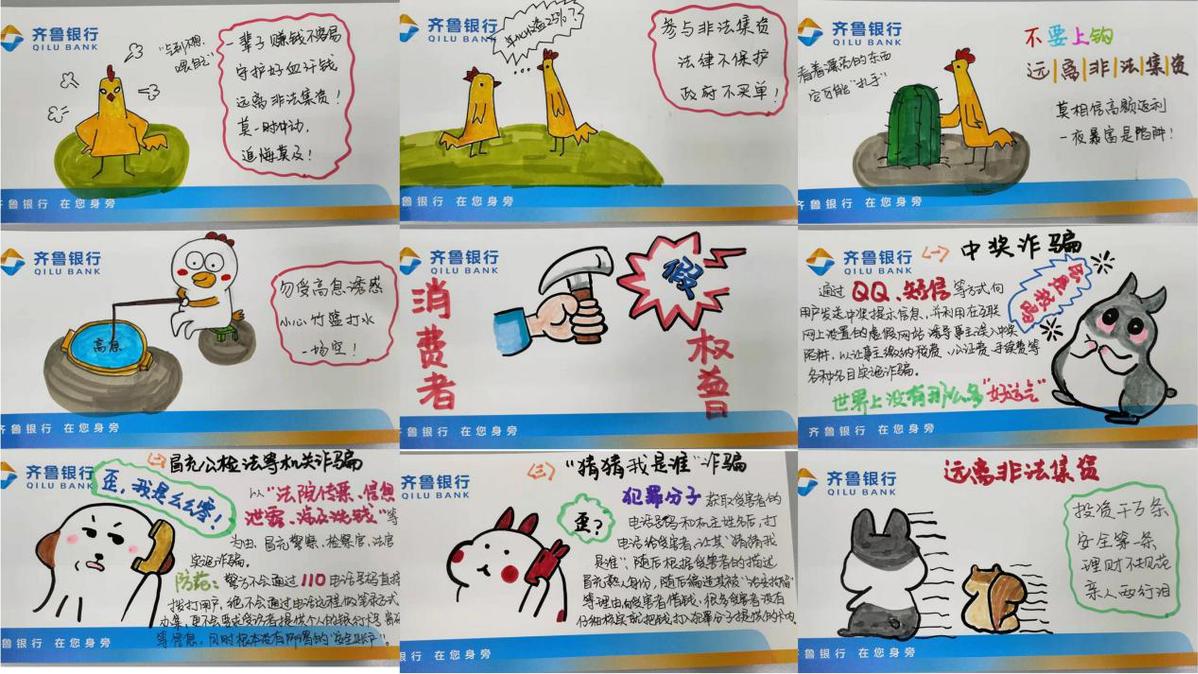 齐鲁银行
QILU BANK
一辈子赚钱不容易
守护好血汗钱
远离非法集资！
莫一时冲动，
追悔莫及！
齐鲁银行 在您身旁
齐鲁银行
QILU BANK
年化收益25%？
参与非法集资
法律不保护
政府不买单！
齐鲁银行 在您身旁
齐鲁银行
QILU BANK
看着漂亮的东西
它可能“扎手”
不要上钩
远离非法集资
莫相信高额返利
一夜暴富是陷阱！
齐鲁银行 在您身旁
齐鲁银行
QILU BANK
高息
勿受高息诱惑
小心竹篮打水
一场空！
齐鲁银行 在您身旁
齐鲁银行
QILU BANK
消费者
假
权益
齐鲁银行 在您身旁
齐鲁银行
QILU BANK
(一) 中奖诈骗
通过QQ、短信等方式向
用户发送中奖提示信息，并利用在互联
网上设置的虚假网站诱导事主误入中奖
陷阱，以让事主缴纳税费、公证费、手续费等
各种名目实施诈骗。
世界上没有那么多“好运气”
齐鲁银行 在您身旁
齐鲁银行
QILU BANK
(二) 冒充公检法等机关诈骗
歪，我是么么零！
以“法院传票、信息
泄露、涉及洗钱”等
为由，冒充警察、检察官、法官
实施诈骗。
防范：警方不会通过110电话号码直接
拨打用户，绝不会通过电话远程做笔录方式
办案，更不会要求受访者提供个人的银行卡号、密码
等信息，同时根本没有所谓的“安全账户”。
齐鲁银行 在您身旁
齐鲁银行
QILU BANK
(三) “猜猜我是谁”诈骗
歪？
犯罪分子获取受害者的
电话号码和机主姓名后，打
电话给受害者，让其“猜猜我
是谁”，随后根据受害者的描述
冒充熟人身份，随后编造其被“治安拘留”
等理由向受害者借钱，很多受害者没有
仔细核实就把钱打入犯罪分子提供的卡内
齐鲁银行 在您身旁
齐鲁银行
QILU BANK
远离非法集资
投资千万条
安全第一条
理财不规范
亲人两行泪
齐鲁银行 在您身旁